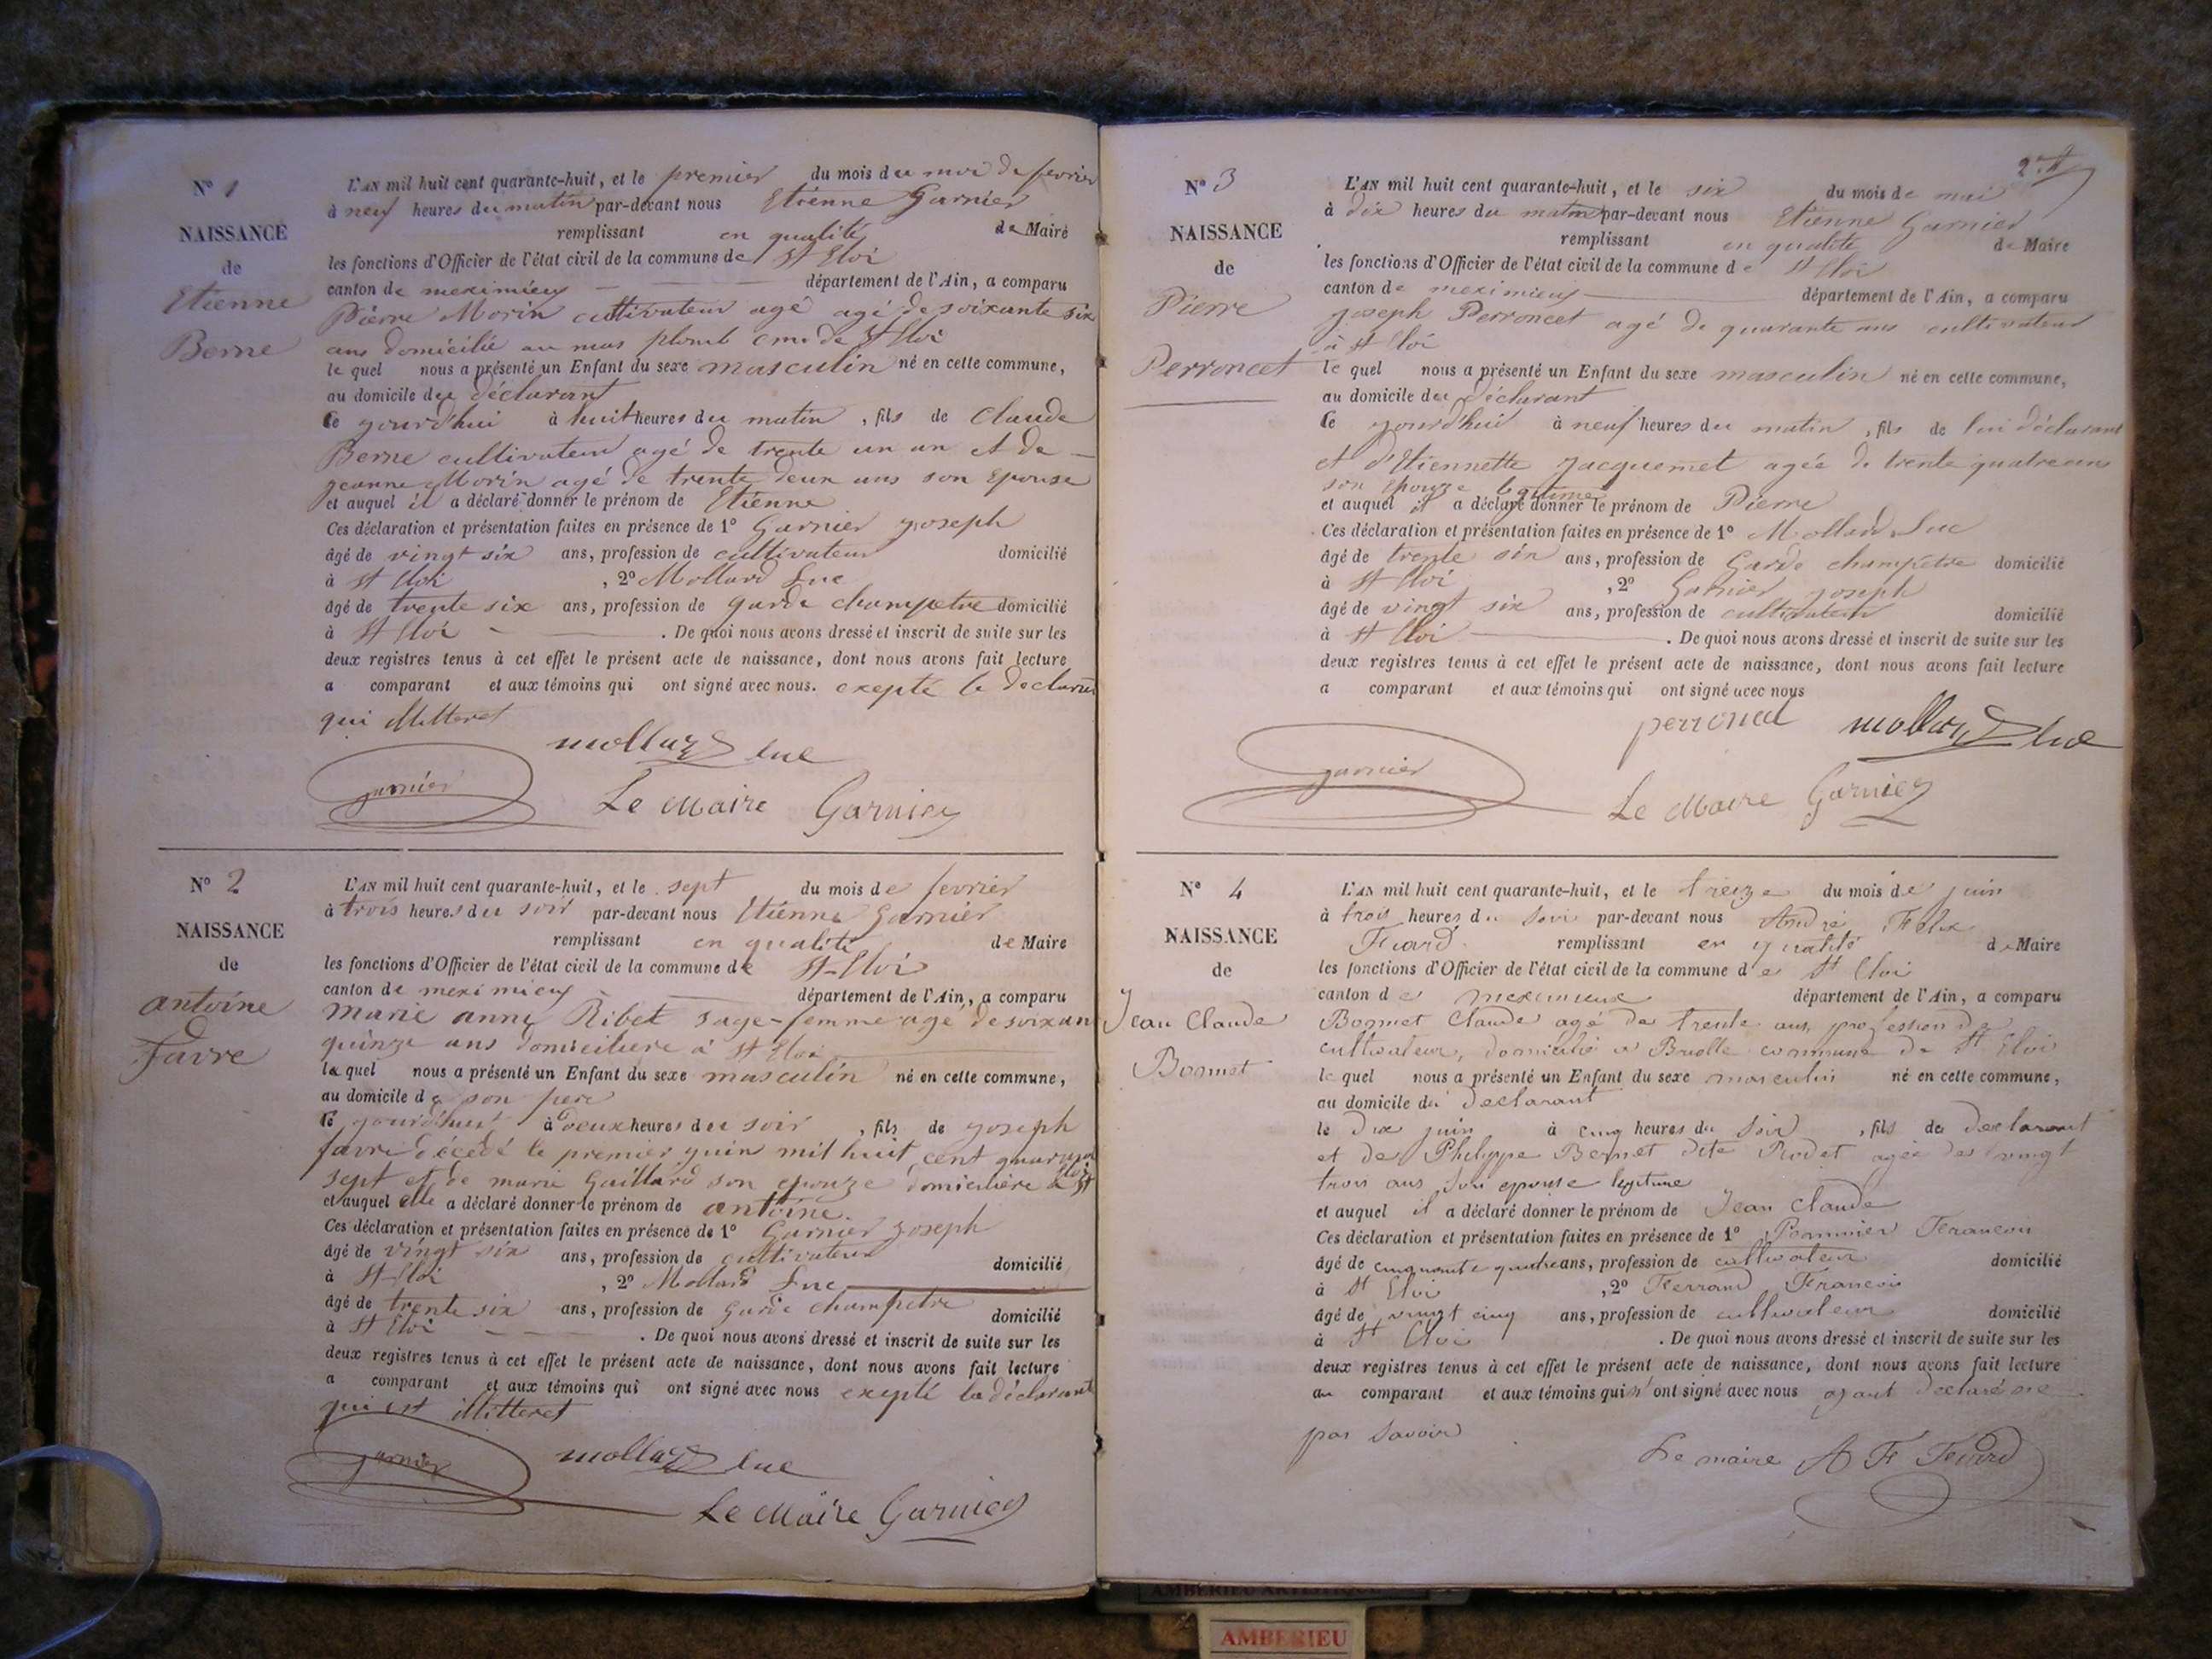 N° 1
NAISSANCE
de
Etienne
Berne
L'AN mil huit cent quarante-huit, et le premier du mois du moi de fevrier
à neuf heures du matin par-devant nous Etienne Garnier
remplissant en qualité de Maire
les fonctions d'Officier de l'état civil de la commune de St Eloi
canton de meximieux département de l'Ain, a comparu
Pierre Morin cultivateur agé agé de soixante six
ans domicilié au mas plomb de St Eloi
le quel nous a présenté un Enfant du sexe masculin né en cette commune,
au domicile du déclarant
Ce jourd'hui à huit heures du matin, fils de Claude
Berne cultivateur agé de trente un an et de
jeanne Morin agé de trente deux ans son epouse
et auquel il a déclaré donner le prénom de Etienne
Ces déclaration et présentation faites en présence de 1° Garnier joseph
âgé de vingt six ans, profession de cultivateur domicilié
à St Eloi, 2° Mollard Luc
âgé de trente six ans, profession de garde champetre domicilié
à St Eloi. De quoi nous avons dressé et inscrit de suite sur les
deux registres tenus à cet effet le présent acte de naissance, dont nous avons fait lecture
a comparant et aux témoins qui ont signé avec nous. exepté le declarant
qui illitteret
mollard luc
garnier
Le Maire Garnier
N° 2
NAISSANCE
de
antoine
favre
L'AN mil huit cent quarante-huit, et le sept du mois de fevrier
à trois heures du soir par-devant nous Etienne Garnier
remplissant en qualité de Maire
les fonctions d'Officier de l'état civil de la commune de St-Eloi
canton de meximieux département de l'Ain, a comparu
marie anne Ribet sage-femme agé de soixan
quinze ans domiciliere à St Eloi
la quel nous a présenté un Enfant du sexe masculin né en cette commune,
au domicile de son pere
Ce jourd'hui à deux heures du soir, fils de joseph
favre décédé le premier juin mil huit cent quarante
sept et de marie Gaillard son epouze domiciliere à St Eloi
et auquel elle a déclaré donner le prénom de antoine.
Ces déclaration et présentation faites en présence de 1° Garnier joseph
âgé de vingt six ans, profession de cultivateur domicilié
à St-Eloi, 2° Mollard Luc
âgé de trente six ans, profession de Garde champetre domicilié
à St Eloi. De quoi nous avons dressé et inscrit de suite sur les
deux registres tenus à cet effet le présent acte de naissance, dont nous avons fait lecture
a comparant et aux témoins qui ont signé avec nous exepté la déclarante
qui est illitteret
garnier mollard luc
Le Maire Garnier
N° 3
NAISSANCE
de
Pierre
Perroncet
L'AN mil huit cent quarante-huit, et le six du mois de mai
à dix heures du matin par-devant nous Etienne Garnier
remplissant en qualité de Maire
les fonctions d'Officier de l'état civil de la commune de St Eloi
canton de meximieux département de l'Ain, a comparu
joseph Perroncet agé de quarante ans cultivateur
à St Eloi
le quel nous a présenté un Enfant du sexe masculin né en cette commune,
au domicile du déclarant
Ce jourd'hui à neuf heures du matin, fils de lui déclarant
et d'Etiennette jacquemet agée de trente quatre ans
son epouze legitime
et auquel il a déclaré donner le prénom de Pierre
Ces déclaration et présentation faites en présence de 1° Mollard Luc
âgé de trente six ans, profession de Garde champetre domicilié
à St Eloi, 2° Garnier joseph
âgé de vingt six ans, profession de cultivateur domicilié
à St Eloi. De quoi nous avons dressé et inscrit de suite sur les
deux registres tenus à cet effet le présent acte de naissance, dont nous avons fait lecture
a comparant et aux témoins qui ont signé avec nous
mollard luc
garnier
Le Maire Garnier
N° 4
NAISSANCE
de
Jean Claude
Bonnet
L'AN mil huit cent quarante-huit, et le treize du mois de juin
à trois heures du soir par-devant nous André Félix
remplissant en qualité de Maire
les fonctions d'Officier de l'état civil de la commune de St Eloi
canton de meximieux département de l'Ain, a comparu
Bonnet Claude agé de trente ans, profession de
cultivateur, domicilié a commune de St Eloi
le quel nous a présenté un Enfant du sexe masculin né en cette commune,
au domicile du declarant
le dix juin à cinq heures du soir, fils du declarant
et de Philippe Bernet dite Rodet agée des vingt
trois ans son epouse legitime
et auquel il a déclaré donner le prénom de Jean Claude
Ces déclaration et présentation faites en présence de 1° Pommier Francois
âgé de cinquante quatre ans, profession de cultivateur domicilié
à St Eloi, 2° Ferrand Francois
âgé de vingt cinq ans, profession de cultivateur domicilié
à St Eloi. De quoi nous avons dressé et inscrit de suite sur les
deux registres tenus à cet effet le présent acte de naissance, dont nous avons fait lecture
au comparant et aux témoins qui n'ont signé avec nous ayant declaré ne
pas savoir
Le maire A F
AMBERIEU ARTISTIQUE
AMBERIEU